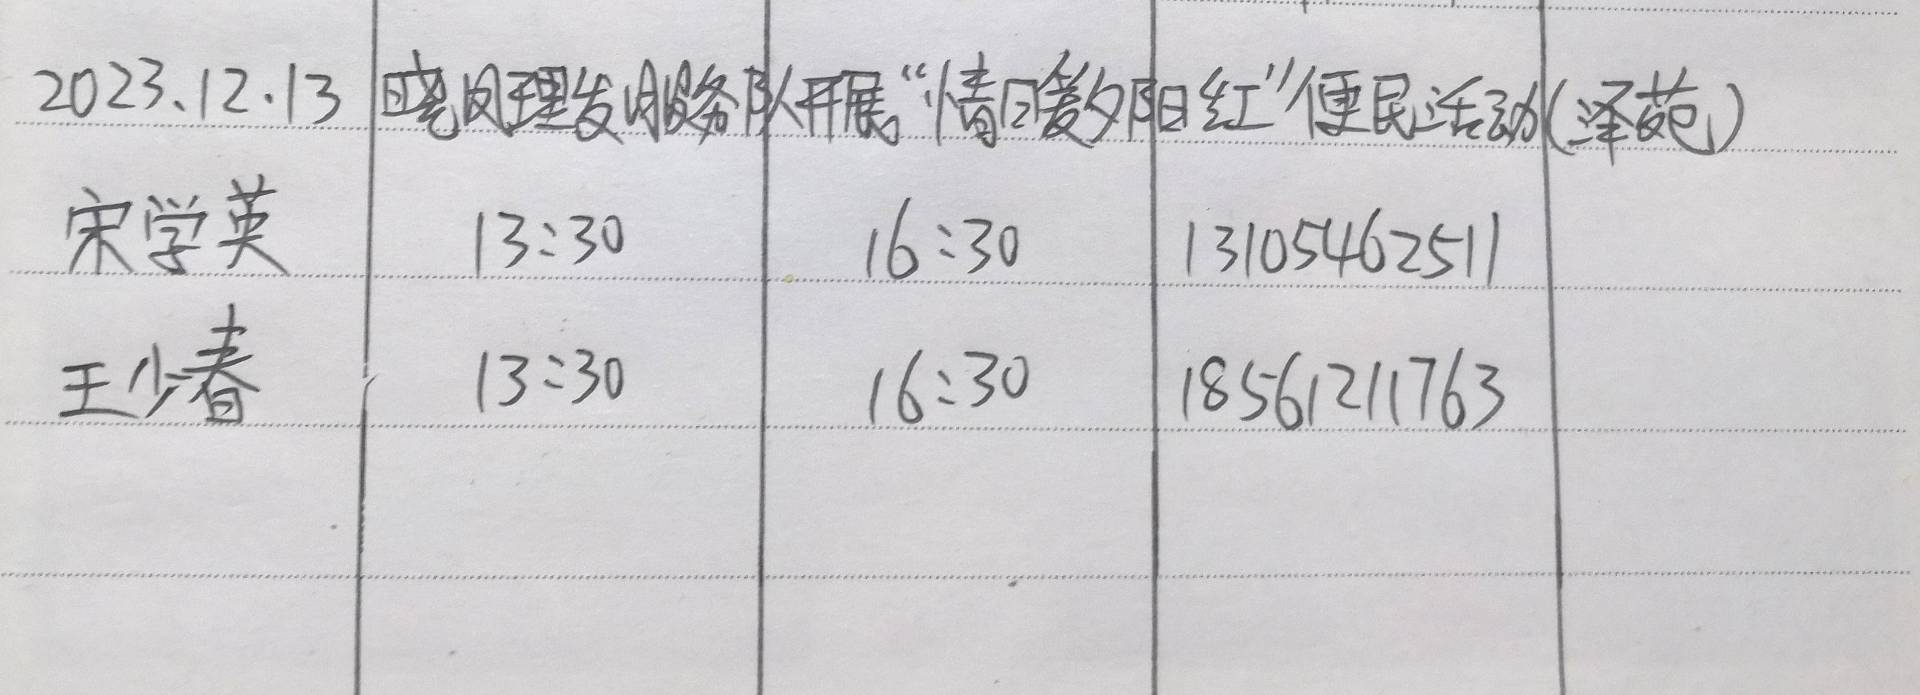 2023.12.13 晓风理发服务队开展“情暖夕阳红”便民活动(泽苑)
宋学英 13:30 16:30 13105462511
王少春 13:30 16:30 18561211763